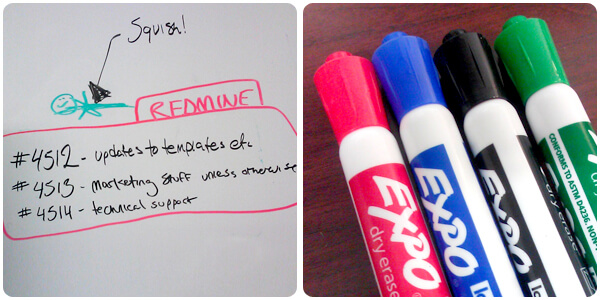 Squish!
REDMINE
#4512 - updates to templates etc.
#4513 - Marketing stuff unless otherwise
#4514 - technical support
EXPO
dry erase
EXPO
EXPO
dry erase
CONFORMS TO ASTM D4236. NON-